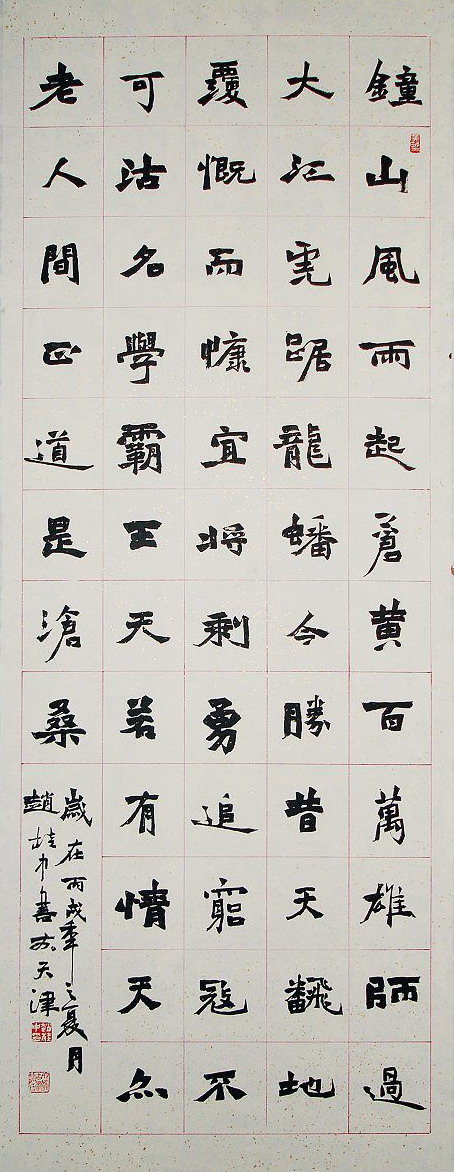 鐘山風雨起蒼黄百萬雄師過
大江虎踞龍蟠今勝昔天飜地
覆慨而慷宜將剩勇追窮寇不
可沽名學霸王天若有情天亦
老人間正道是滄桑
歲在丙戌年之夏月
趙桂中書於天津